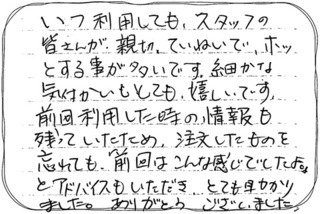 いつ利用しても、スタッフの
皆さんが、親切、ていねいで、ホッ
とする事が多いです。細かな
気付かいもとても、嬉しいです。
前回利用した時の情報も
残っていたため、注文したものを
忘れても、「前回はこんな感じでしたよ」
とアドバイスもいただき、とても助かり
ました。ありがとうございました。